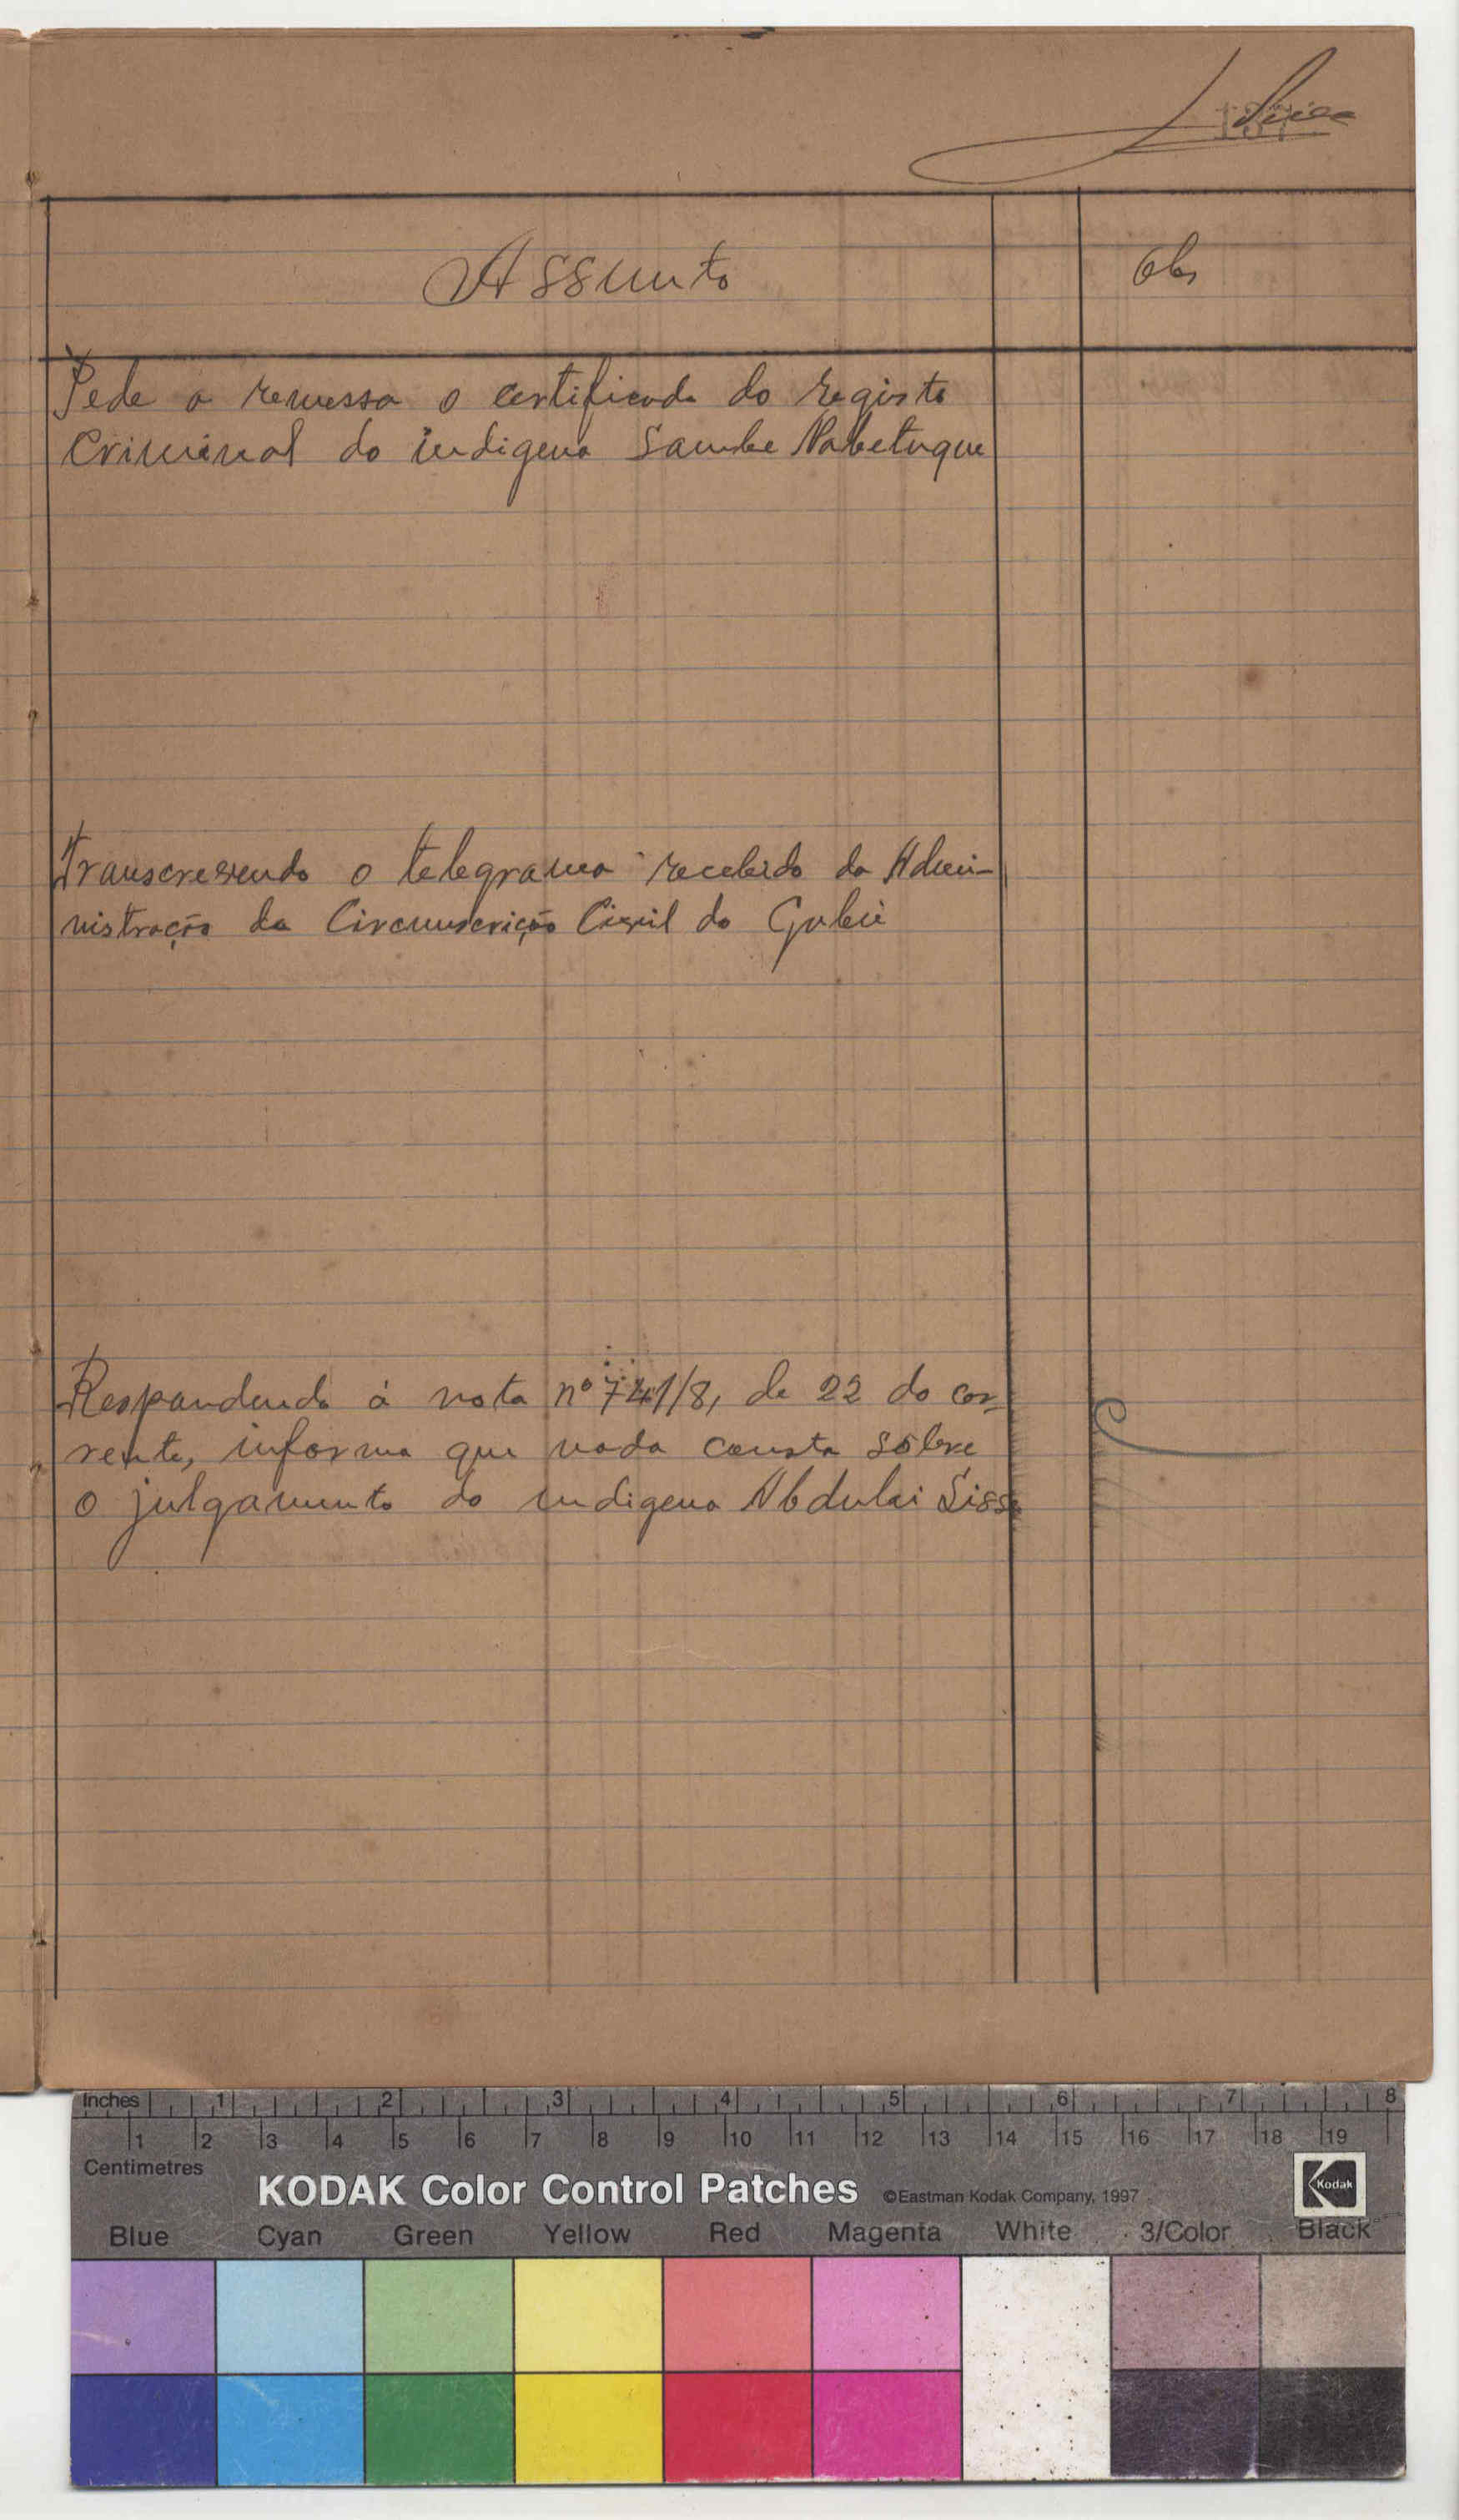 137
Assunto
Obs
Pede a remessa o certificado do registo
Criminal do indigena Sambe Nabetuque
Transcrevendo o telegrama recebido da Admi-
nistração da Circunscrição Civil do Gabú
Respondendo à nota nº 741/8, de 22 do cor-
rente, informa que nada consta sôbre
o julgamento do indigena Abdulai Sissé
Inches 1 2 3 4 5 6 7 8
1 2 3 4 5 6 7 8 9 10 11 12 13 14 15 16 17 18 19
Centimetres
KODAK Color Control Patches ©Eastman Kodak Company, 1997 Kodak
Blue Cyan Green Yellow Red Magenta White 3/Color Black